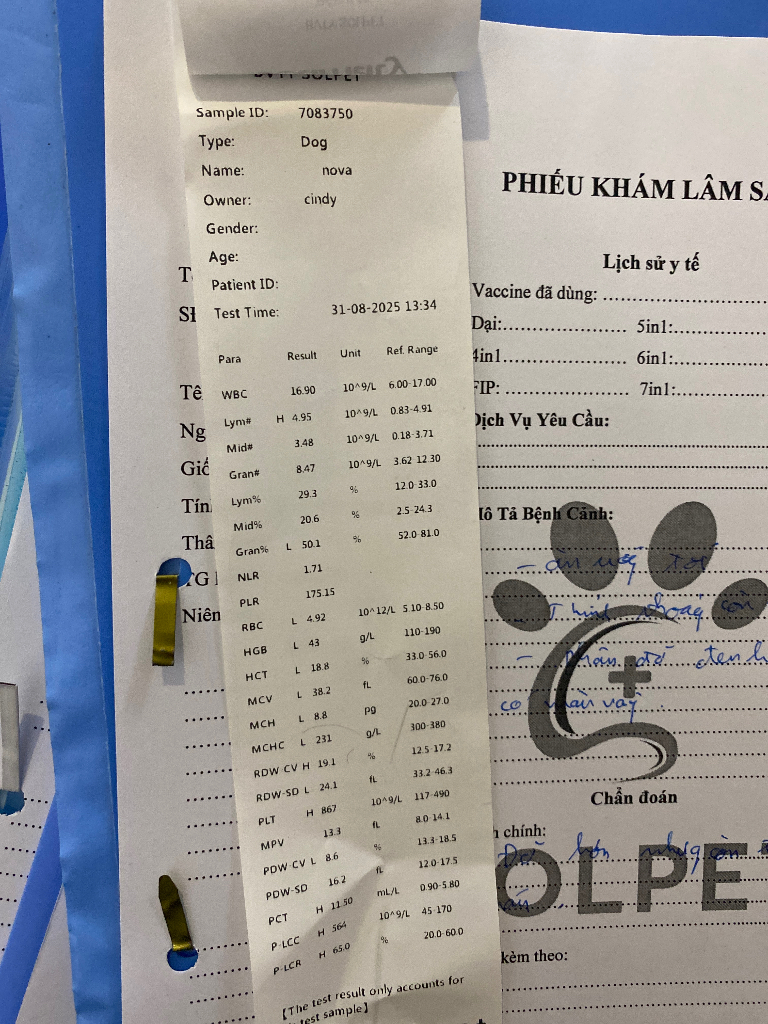 Sample ID: 7083750
Type: Dog
Name: nova
Owner: cindy
Gender:
Age:
Patient ID:
Test Time: 31-08-2025 13:34
Para Result Unit Ref. Range
WBC 16.90 10^9/L 6.00-17.00
Lym# H 4.95 10^9/L 0.83-4.91
Mid# 3.48 10^9/L 0.18-3.71
Gran# 8.47 10^9/L 3.62-12.30
Lym% 29.3 % 12.0-33.0
Mid% 20.6 % 2.5-24.3
Gran% L 50.1 % 52.0-81.0
NLR 1.71
PLR 175.15
RBC L 4.92 10^12/L 5.10-8.50
HGB L 43 g/L 110-190
HCT L 18.8 % 33.0-56.0
MCV L 38.2 fL 60.0-76.0
MCH L 8.8 pg 20.0-27.0
MCHC L 231 g/L 300-380
RDW-CV H 19.1 % 12.5-17.2
RDW-SD L 24.1 fL 33.2-46.3
PLT H 867 10^9/L 117-490
MPV 13.3 fL 8.0-14.1
PDW-CV L 8.6 % 13.3-18.5
PDW-SD 16.2 fL 12.0-17.5
PCT H 11.50 mL/L 0.90-5.80
P-LCC H 564 10^9/L 45-170
P-LCR H 65.0 % 20.0-60.0
[The test result only accounts for
test sample]
PHIẾU KHÁM LÂM
Lịch sử y tế
Vaccine đã dùng:
Dại: 5in1:
4in1 6in1:
FIP: 7in1:
Dịch Vụ Yêu Cầu:
Mô Tả Bệnh Cảnh:
Chẩn đoán
chính:
OLPE
kèm theo:
Tê
Ng
Giố
Tín
Thâ
TG
Niên